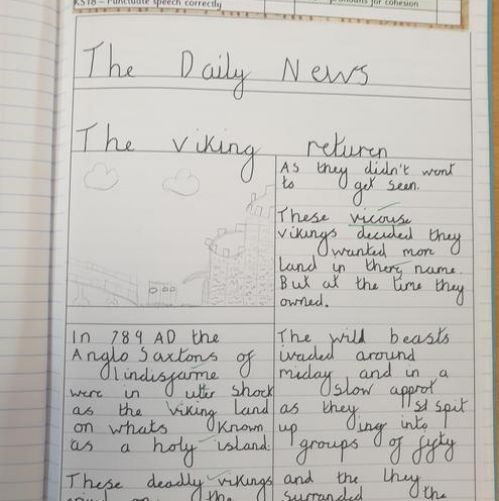 KS18 - Punctuate speech correctly
pronouns for cohesion
The Daily News
The viking returen
As they didn't want
to get seen.
These vicouse
vikings decided they
wanted more
land in there name.
But at the time they
owned.
In 789 AD the
Anglo Saxtons of
lindisfarme
were in utter shock
as the viking land
on whats Known
as a holy island.
These deadly vikings
the
The wild beasts
ivaded around
miday and in a
slow approt
as they spit
up ing into
groups of fyfty
and the they
surranded the